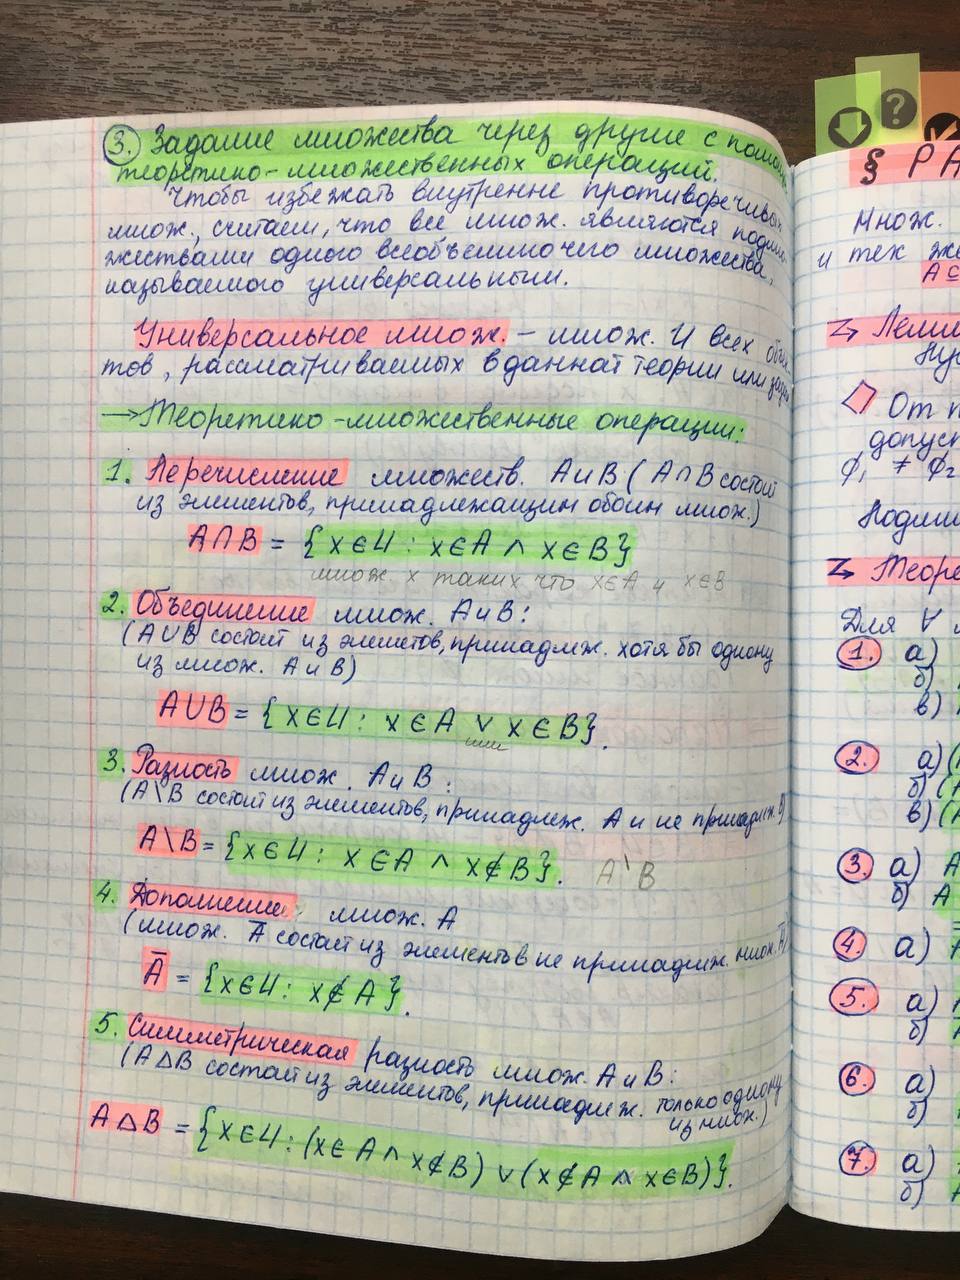 3. Задание множества через другие с помощ
теоретико-множественных операций.
Чтобы избежать внутренне противоречивых
множ., считаем, что все множ. являются подмно-
жествами одного всеобъемлющего множества,
называемого универсальным.
Универсальное множ. – множ. U всех объек
тов, рассматриваемых в данной теории или задач
→Теоретико-множественные операции:
1. Перечисление множеств. A и B (A∩B состоит
из элементов, принадлежащих обоим множ.)
A∩B = {x∈U : x∈A ∧ x∈B}
множ. x таких что x∈A и x∈B
2. Объединение множ. A и B:
(A∪B состоит из элеметов, принадлеж. хотя бы одному
из множ. A и B)
A∪B = {x∈U : x∈A ∨ x∈B}.
или
3. Разность множ. A и B :
(A\B состоит из элементов, принадлеж. A и не принадлеж. B)
A\B = {x∈U : x∈A ∧ x∉B}. A\B
4. Дополнение множ. A
(множ. A̅ состоит из элементов не принадлеж. множ. A)
A̅ = {x∈U : x∉A}.
5. Симметрическая разность множ. A и B:
(A△B состоит из элементов, принадлеж. только одному
из множ.)
A△B = {x∈U : (x∈A ∧ x∉B) ∨ (x∉A ∧ x∈B)}.
?
§ РА
Множ.
и тех же
A⊆
Лемм
Ну
От п
допуст
∅₁ ≠ ∅₂
Подмн
Теоре
Для ∀
1. а)
б)
в)
2. а) (
б) (
в) (
3. а) A
б) A
4. а)
5. а)
б)
6. а)
б)
7. а)
б)